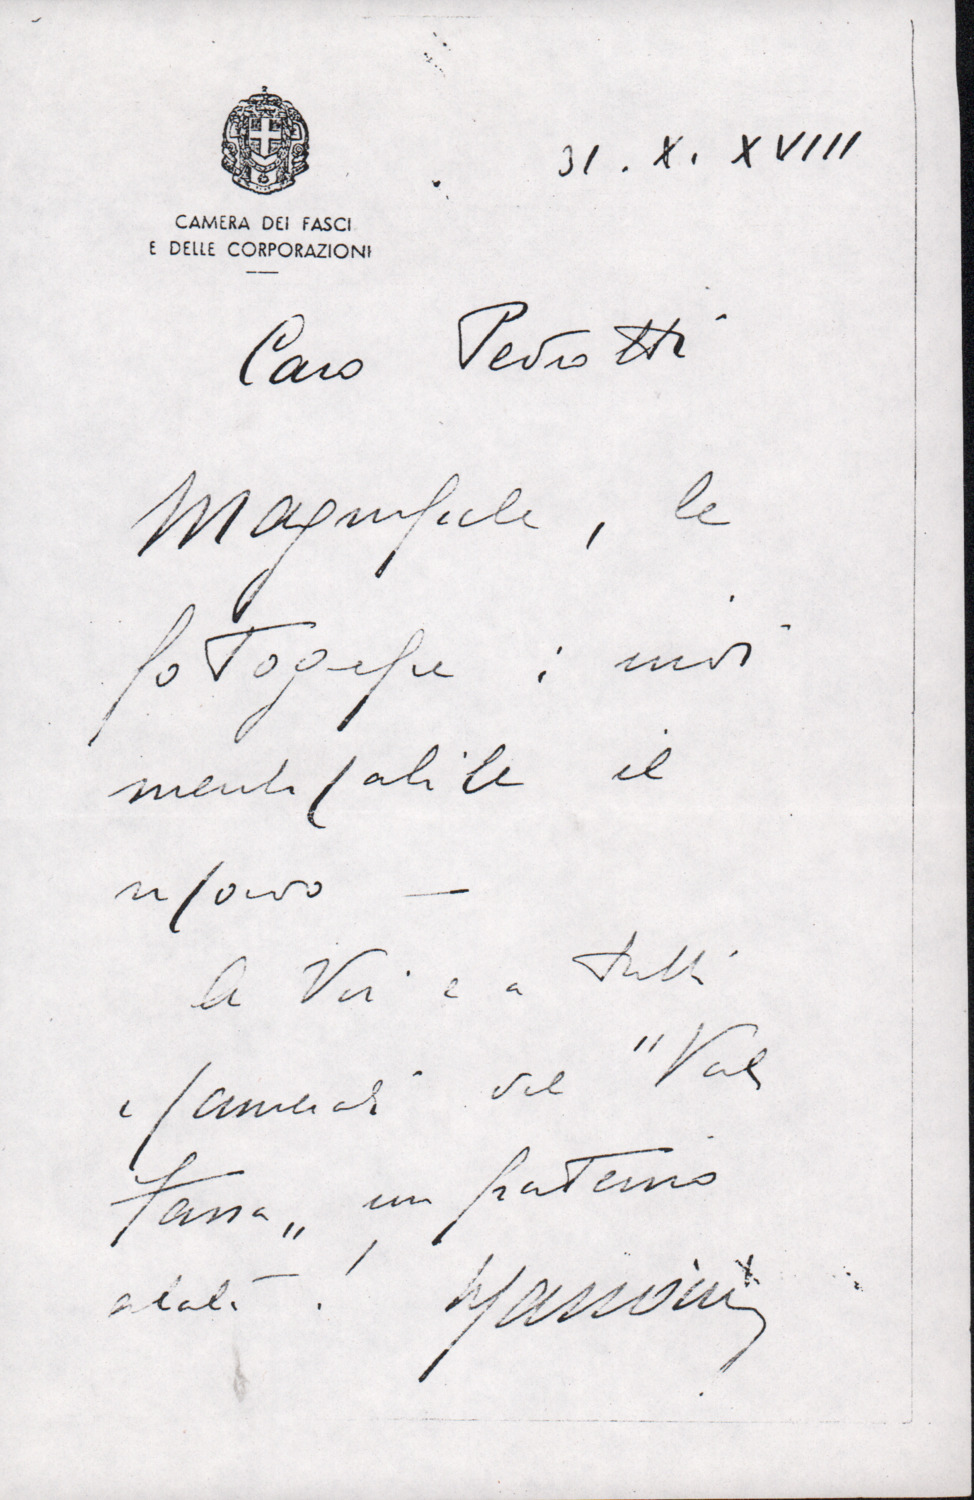 31. X. XVIII
CAMERA DEI FASCI
E DELLE CORPORAZIONI
Caro Pedrotti
Magnifiche, le
fotografie; indi
menticabile il
ricordo —
A Voi e a tutti
i camerati del "Val
Fassa„ un fraterno
alalà!